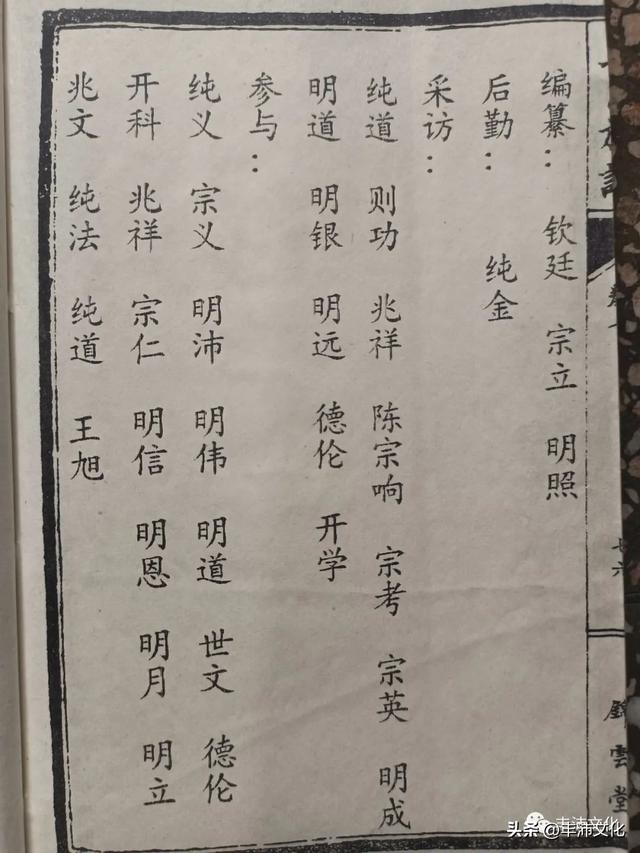 编纂： 钦廷 宗立 明照
后勤： 纯金
采访：
纯道 则功 兆祥 陈宗响 宗考 宗英 明成
明道 明银 明远 德伦 开学
参与：
纯义 宗义 明沛 明伟 明道 世文 德伦
开科 兆祥 宗仁 明信 明恩 明月 明立
兆文 纯法 纯道 王旭
七六
錦雲堂
丰沛文化
头条 @丰沛文化